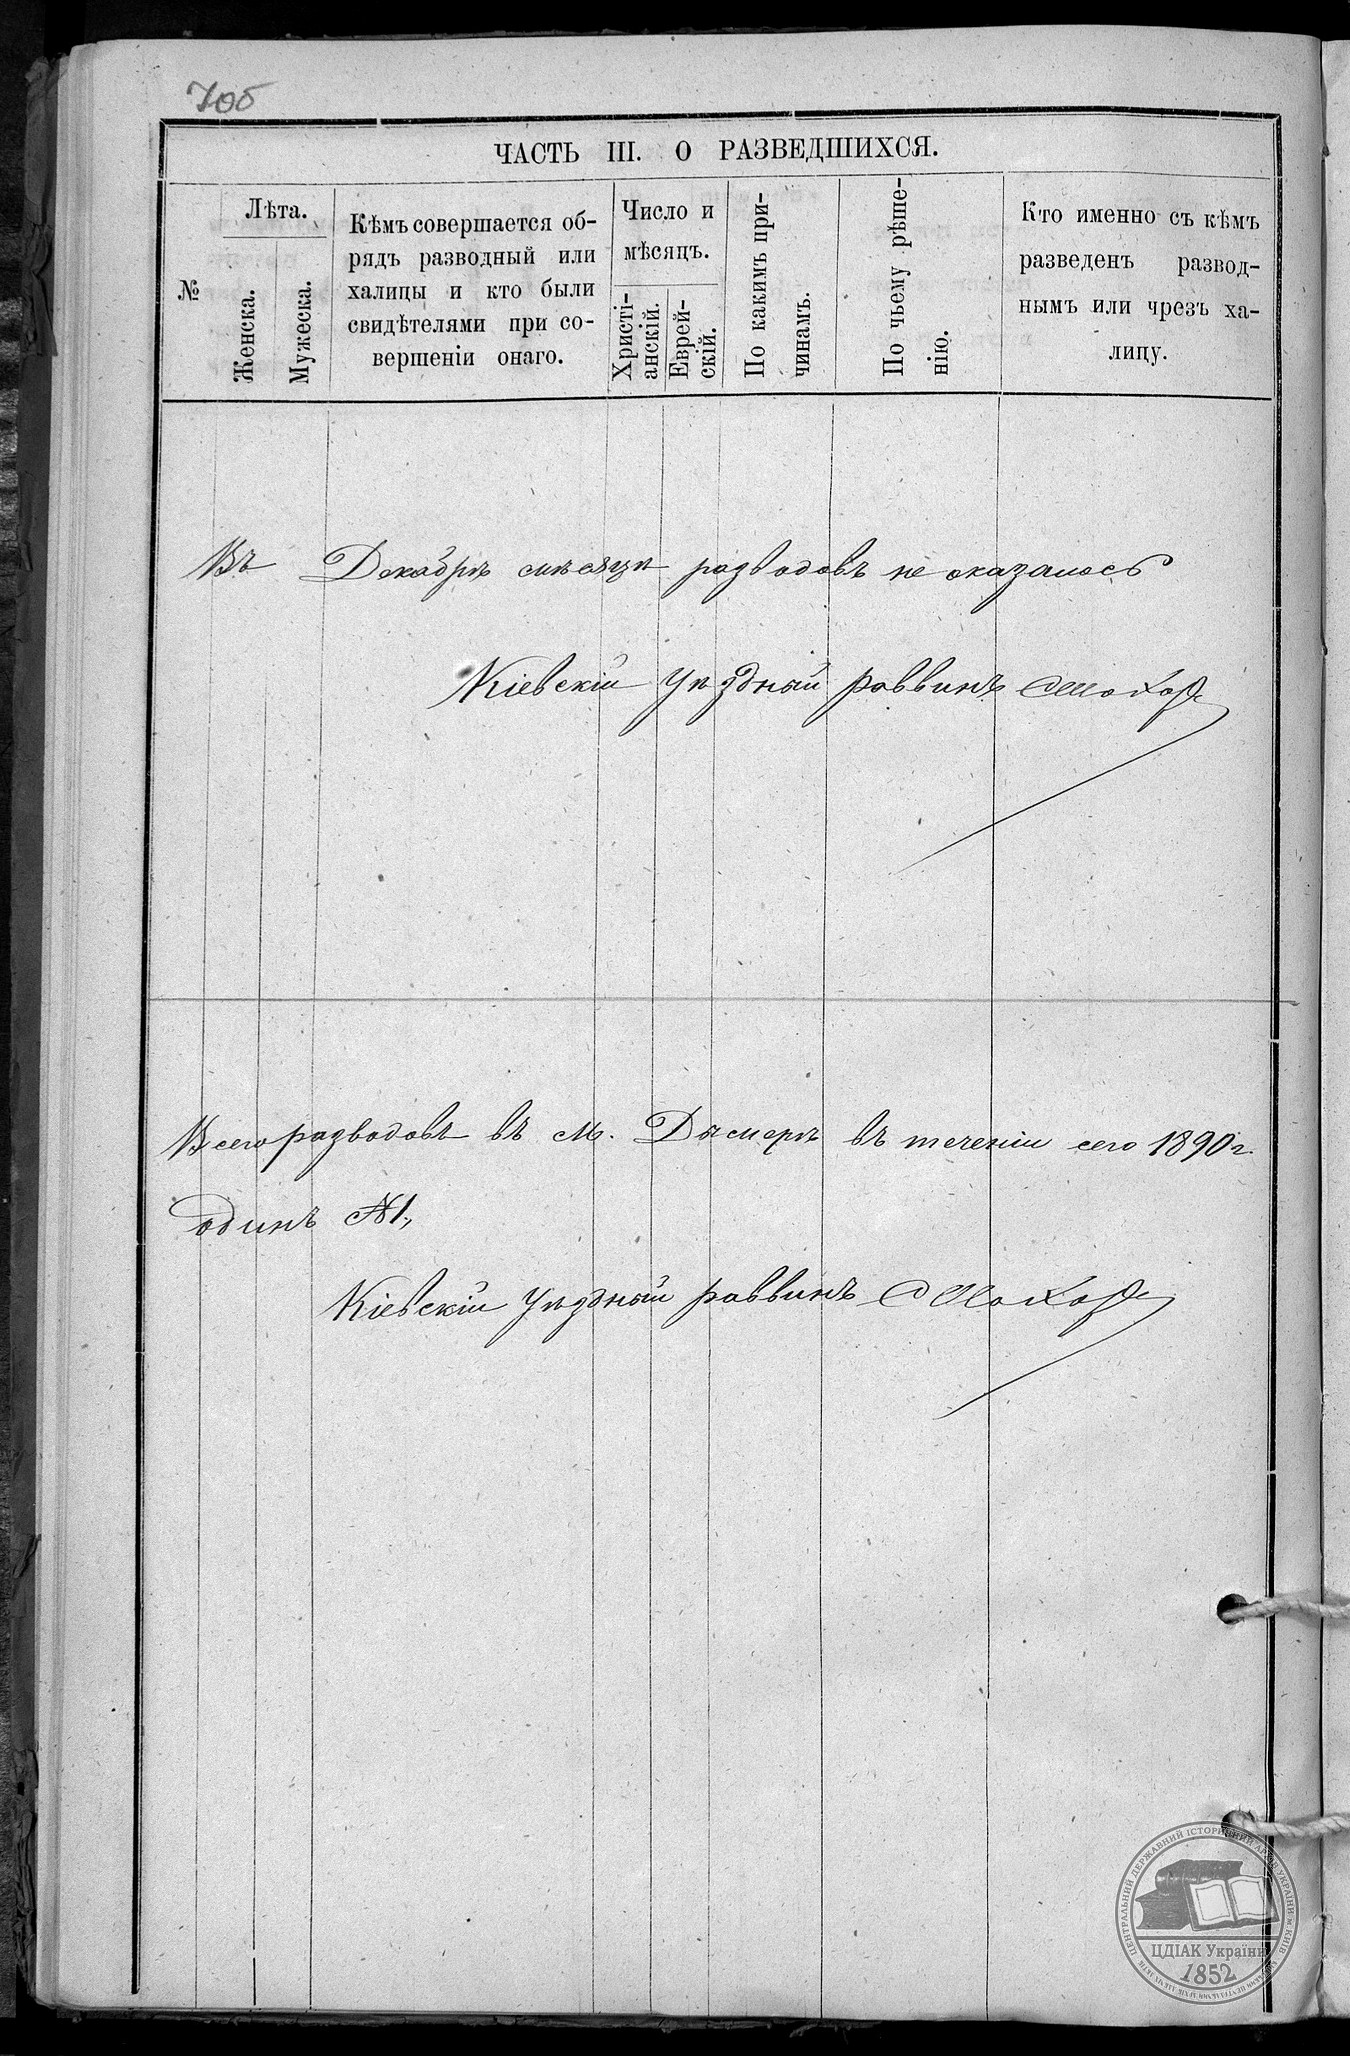 70б
ЧАСТЬ III. О РАЗВЕДШИХСЯ.
№
Лѣта.
Женска.
Мужеска.
Кѣмъ совершается об-
рядъ разводный или
халицы и кто были
свидѣтелями при со-
вершеніи онаго.
Число и
мѣсяцъ.
Христі-
анскій.
Еврей-
скій.
По какимъ при-
чинамъ.
По чьему рѣше-
нію.
Кто именно съ кѣмъ
разведенъ развод-
нымъ или чрезъ ха-
лицу.
Въ Декабрѣ мѣсяцѣ разводовъ не оказалось
Кіевскій уѣздный раввинъ
Всего разводовъ въ м. Дымерѣ въ теченіи сего 1890 г.
одинъ №1,
Кіевскій уѣздный раввинъ
ЦЕНТРАЛЬНИЙ ДЕРЖАВНИЙ ІСТОРИЧНИЙ АРХІВ УКРАЇНИ м. КИЇВ
ЦДІАК України
1852